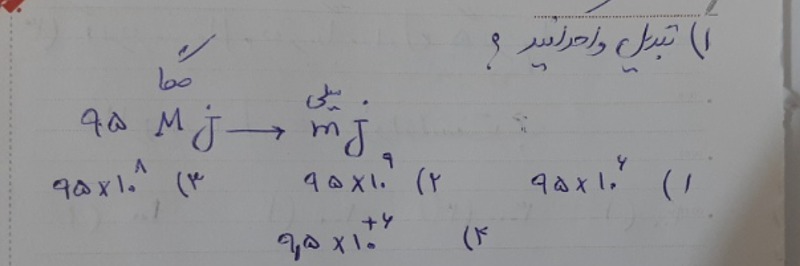 ۱) تبدیل واحد کنید ؟
مگا میلی
۹۵ Mj → mj
۱) ۹۵×۱۰^۶ ۲) ۹۵×۱۰^۹ ۳) ۹۵×۱۰^۸
۴) ۹,۵×۱۰^+۶